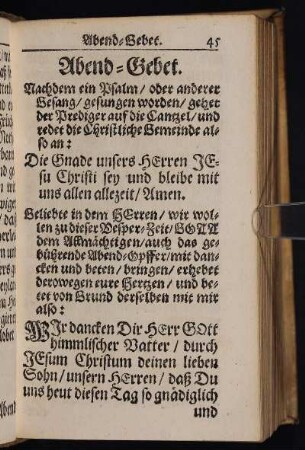 Abend-Gebet. 45
Abend-Gebet.
Nachdem ein Psalm / oder anderer
Gesang / gesungen worden / gehet
der Prediger auf die Cantzel / und
redet die Christliche Gemeinde al-
so an:
Die Gnade unsers HErren JE-
su Christi sey und bleibe mit
uns allen allezeit / Amen.
Geliebte in dem HErren / wir wol-
len zu dieser Vesper-Zeit / GOTT
dem Allmächtigen / auch das ge-
bührende Abend-Opffer / mit dan-
cken und beten / bringen / erhebet
derowegen eure Hertzen / und be-
tet von Grund derselben mit mir
also:
WIr dancken Dir HErr GOtt
himmlischer Vatter / durch
JEsum Christum deinen lieben
Sohn / unsern HErren / daß Du
uns heut diesen Tag so gnädiglich
und